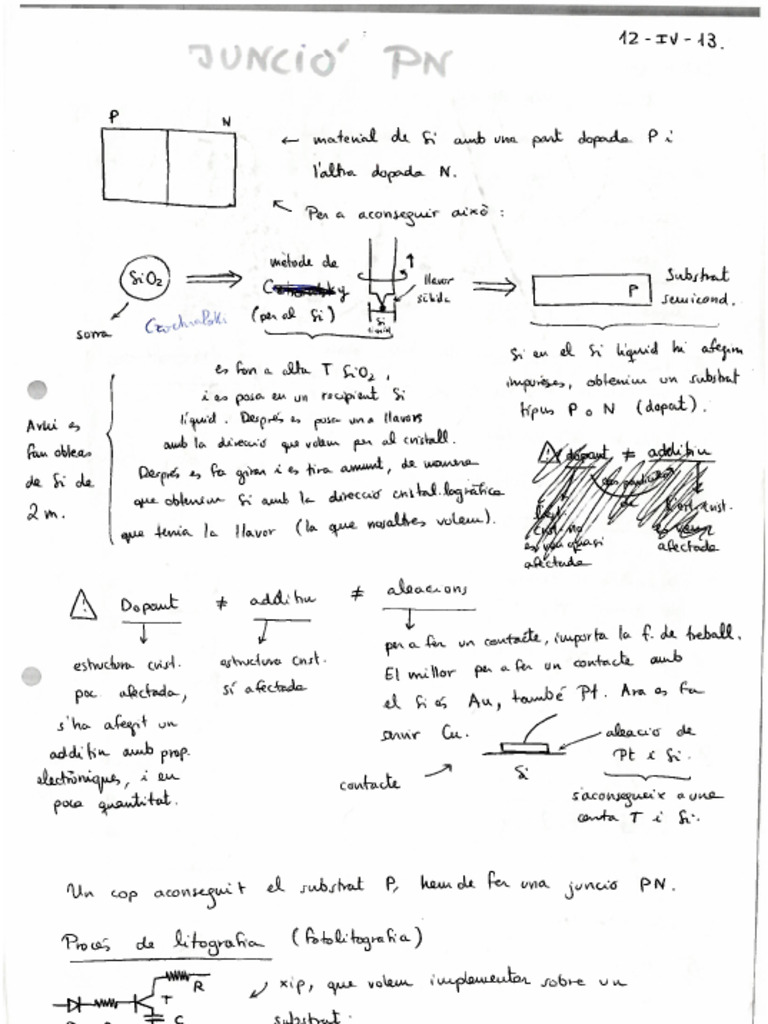 12-IV-13.
JUNCIÓ PN
P N
← material de Si amb una part dopada P i
l'altra dopada N.
Per a aconseguir això:
SiO2
sorra
mètode de
Czochralski
(per al Si)
llavor
sòlida
Si
líquid
P
Substrat
semicond.
Si en el Si líquid hi afegim
impureses, obtenim un substrat
tipus P o N (dopat).
es fon a alta T SiO2,
i es posa en un recipient Si
líquid. Després es posa una llavors
amb la direcció que volem per al cristall.
Després es fa girar i es tira amunt, de manera
que obtenim Si amb la direcció cristal·logràfica
que tenia la llavor (la que nosaltres volem).
Així es
fan oblees
de Si de
2 m.
dopant ≠ additiu
afectada
afectada
Dopant ≠ additiu ≠ aleacions
estructura crist.
poc afectada,
s'ha afegit un
additiu amb prop.
electròniques, i en
poca quantitat.
estructura crist.
sí afectada
per a fer un contacte, importa la f. de treball.
El millor per a fer un contacte amb
el Si és Au, també Pt. Ara es fa
servir Cu.
contacte
Si
aleació de
Pt i Si.
s'aconsegueix a una
certa T i Si.
Un cop aconseguit el substrat P, hem de fer una junció PN.
Procés de litografia (fotolitografia)
R
T
C
xip, que volem implementar sobre un
substrat.